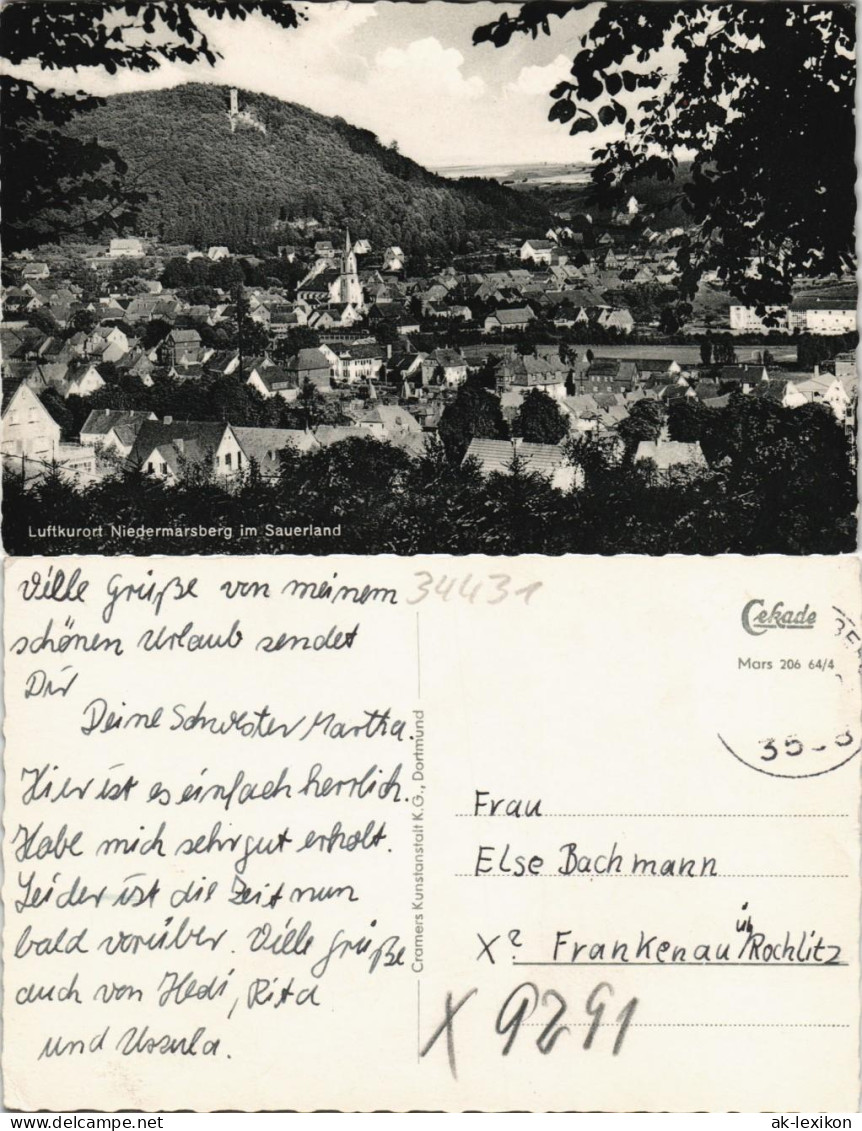 Luftkurort Niedermarsberg im Sauerland
Ville Grüße von meinem
schönen Urlaub sendet
Dir
Deine Schwester Martha.
Hier ist es einfach herrlich.
Habe mich sehr gut erholt.
Leider ist die Zeit nun
bald vorüber. Ville Grüße
auch von Hedi, Rita
und Ursula.
34431
Cramers Kunstanstalt K.G., Dortmund
Cekade
Mars 206 64/4
Frau
Else Bachmann
X? Frankenau üb/Rochlitz
X 9291
www.delcampe.net
ak-lexikon